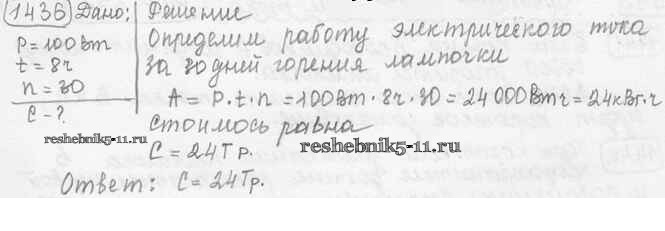 1436 Дано: Решение
P = 100 Вт Определим работу электрического тока
t = 8ч за 30 дней горения лампочки
n = 30 A = P · t · n = 100 Вт · 8ч · 30 = 24 000 Вт ч = 24 кВт · ч
C - ? Стоимось равна
reshebnik5-11.ru C = 24 Тр. reshebnik5-11.ru
Ответ: C = 24 Тр.